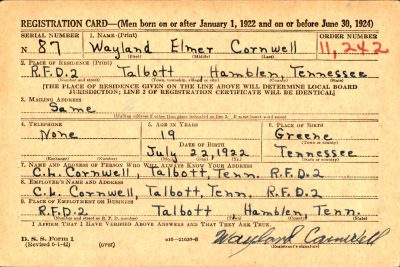 REGISTRATION CARD—(Men born on or after January 1, 1922 and on or before June 30, 1924)
SERIAL NUMBER 1. NAME (Print) ORDER NUMBER
N 87 Wayland Elmer Cornwell 11,242
(First) (Middle) (Last)
2. PLACE OF RESIDENCE (Print)
R.F.D.2 Talbott Hamblen, Tennessee
(Number and street) (Town, township, village, or city) (County) (State)
[THE PLACE OF RESIDENCE GIVEN ON THE LINE ABOVE WILL DETERMINE LOCAL BOARD
JURISDICTION; LINE 2 OF REGISTRATION CERTIFICATE WILL BE IDENTICAL]
3. MAILING ADDRESS
Same
[Mailing address if other than place indicated on line 2. If same insert word same]
4. TELEPHONE 5. AGE IN YEARS 6. PLACE OF BIRTH
None 19 Greene
DATE OF BIRTH (Town or county)
July 22, 1922 Tennessee
(Exchange) (Number) (Mo.) (Day) (Yr.) (State or country)
7. NAME AND ADDRESS OF PERSON WHO WILL ALWAYS KNOW YOUR ADDRESS
C.L. Cornwell, Talbott, Tenn. R.F.D.2
8. EMPLOYER'S NAME AND ADDRESS
C.L. Cornwell, Talbott, Tenn. R.F.D.2
9. PLACE OF EMPLOYMENT OR BUSINESS
R.F.D.2 Talbott Hamblen, Tenn.
(Number and street or R. F. D. number) (Town) (County) (State)
I AFFIRM THAT I HAVE VERIFIED ABOVE ANSWERS AND THAT THEY ARE TRUE.
D. S. S. Form 1
(Revised 6-1-42) (over) Wayland Cornwell
(Registrant's signature)